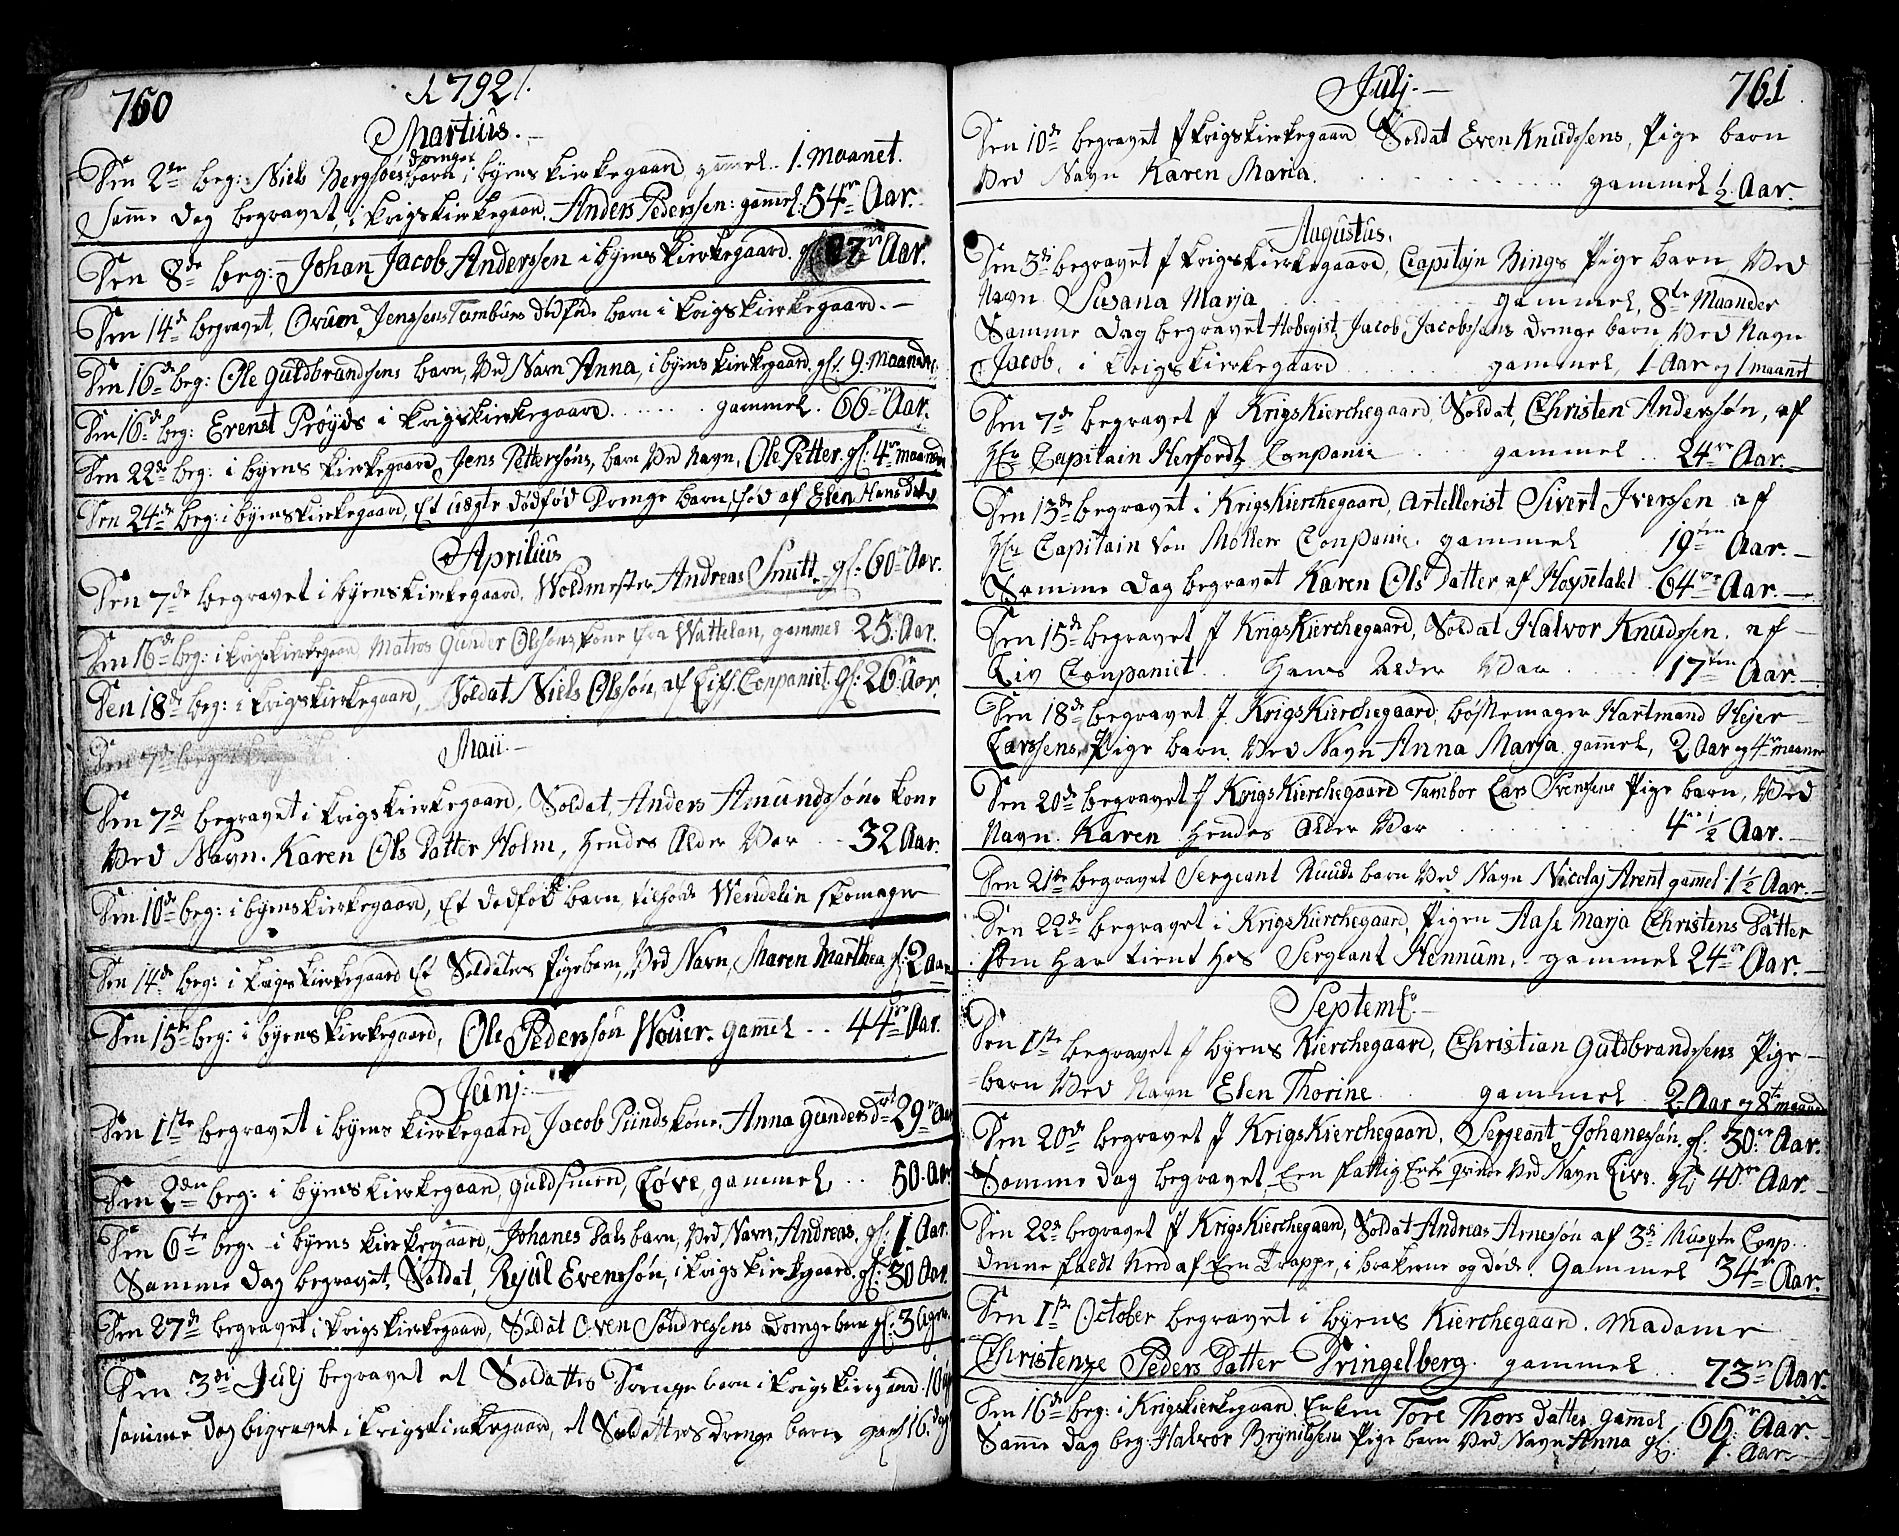 760
1792.
Martius.
Den 2den beg: Niels Bergsøes drenge barn, i byens kirkegaard gammel 1. Maanet.
Samme Dag begravet, i krigskirkegaard, Anders Pederssen: gammel: 54re Aar.
Den 8de beg: Johan Jacob Anderssen i byens kirkegaard. gl:
Den 14de begravet, Jenssens Tamburs dødføde barn i krigskirkegaard.
Den 16de beg: Ole Guldbrandsens barn, Ved Navn Anna, i byens kirkegaard gl. 9. Maander.
Den 16de beg: Erenst Prøyds i krigskirkegaard. . . . . . gammel. 66 Aar.
Den 22de beg: i byens kirkegaard Jens Petterssøns, barn Ved Navn, Ole Petter. gl: 4re maaneder
Den 24de beg: i byens kirkegaard, Et uægte dødfød Drenge barn, fød af Elen Hans datter
Aprilius
Den 7de begravet i byens kirkegaard, Woldmester Andreas Snitt, gl: 60 Aar.
Den 16de beg: i krigskirkegaard Matros Gunder Olssons kone fra Wattelan, gammel 25. Aar.
Den 18de beg: i krigskirkegaard, Soldat Niels Olssøn, af Liff. Conpaniet. gl: 26 Aar.
Maii.
Den 7de
Den 7de begravet i krigskirkegaard, Soldat, Anders Amundssøns kone
Ved Navn. Karen Ols Datter Holm, hendes Alder Var . . 32 Aar.
Den 10de beg: i byens kirkegaard, Et dødfød barn, tilhørde Wendelin skomager
Den 14de beg: i krigskirkegaard Et Soldaters Pigebarn, Ved Navn, Maren Marthea gl: 2 Aar
Den 15de beg: i byens kirkegaard, Ole Pederssøn Woier. gammel . . 44re Aar.
Junj.
Den 1ste begravet i byens kirkegaard, Jacob Punds kone, Anna Gunders dat 29 Aar
Den 2den beg: i byens kirkegaard, guldsmed, Løve, gammel, . . 50. Aar
Den 6te beg: i byens kirkegaard, Johanes Dals barn, Ved Navn, Andreas. gl: 1. Aar.
Samme Dag begravet, Soldat, Rejul Evenssøn, i krigskirkegaard. gl: 30 Aar.
Den 27de begravet i krigskirkegaard, Soldat Even Søndressens Drenge barn gl: 3 Uger
Den 3di Julj begravet et Soldattes Drenge barn i krigskirkegaard.
samme Dag begravet i krigskirkegaard, et Soldatters drenge barn gam 16. dag
761
Julj.
Den 10de begravet J krigskirkegaard Soldat Even Knudssens, Pige barn
Ved Navn Karen Maria. gammel ½ Aar.
Augustus.
Den 3di begravet J krigskirkegaard, Capitajn Bings Pige barn Ved
Navn Susana Marja gammel, 8te Maander
Samme Dag begravet Jacob Jacobssens drenge barn Ved Navn
Jacob, i krigskirkegaard gammel, 1 Aar og 1 maanet
Den 7de begravet J KrigsKierchegaard, Soldat, Christen Anderssøn, af
Hr Capitain Herfordt Conpanie gammel . . 24re Aar.
Den 13de begravet i KrigsKierchegaard, Artellerist Sivert Iverssen af
Hr Capitain Von Møller Conpanie. gammel 19ten Aar.
Samme Dag begravet Karen Ols Datter af Hospetalet. 64re Aar.
Den 15de begravet J KrigsKierchegaard, Soldat Halvor Knudssen. af
Liv Conpaniet . . Hans Alder Var 17ten Aar.
Den 18de begravet J. KrigsKierchegaard, bøssemager Hartmand Hejer
Larssens, Pige barn. Ved Navn Anna Marja. gammel, 2 Aar og 4re maaner
Den 20de begravet J KrigsKierchegaard Tambor Lars Svenssens Pige barn, Ved
Navn. Karen Hendes Alder Var 4re ½ Aar.
Den 21de begravet Sergeant Ruuds barn Ved Navn Nicolaj Arent gamel 1½ Aar.
Den 22de begravet i KrigsKierchegaard, Pigen Aase Marja Christens Datter
som har tient hos Sergeant Hennum, gammel 24re Aar.
Septemb.
Den 1ste begravet J byens Kierchegaard, Christian Guldbrandssens Pige
barn Ved Navn Elen Thorine gammel 2 Aar og 8te maaned
Den 20de begravet J KrigsKierchegaard, Sergeant Johanessøn. gl: 30. Aar.
Samme dag begravet, Een fattig Enke qvinde Ved Navn Live. gl: 40re Aar.
Den 22de begravet J KrigsKierchegaard, Soldat Andreas Arnessøn af 3di Musqter Conp.
Denne faldt Ned af Een Trappe, i brakerne og døde. Gammel 34re Aar.
Den 1ste October begravet i byens Kierchegaard. Madame
Christenze Peders Datter Tringelberg. gammel . . 73re Aar.
Den 16de beg: i Krigskirkegaard. Enken Tore Thors datter, gammel . 66 Aar.
Samme dag beg: Halvor Brynilssens Pige barn Ved Navn Anna gl: 1. Aar